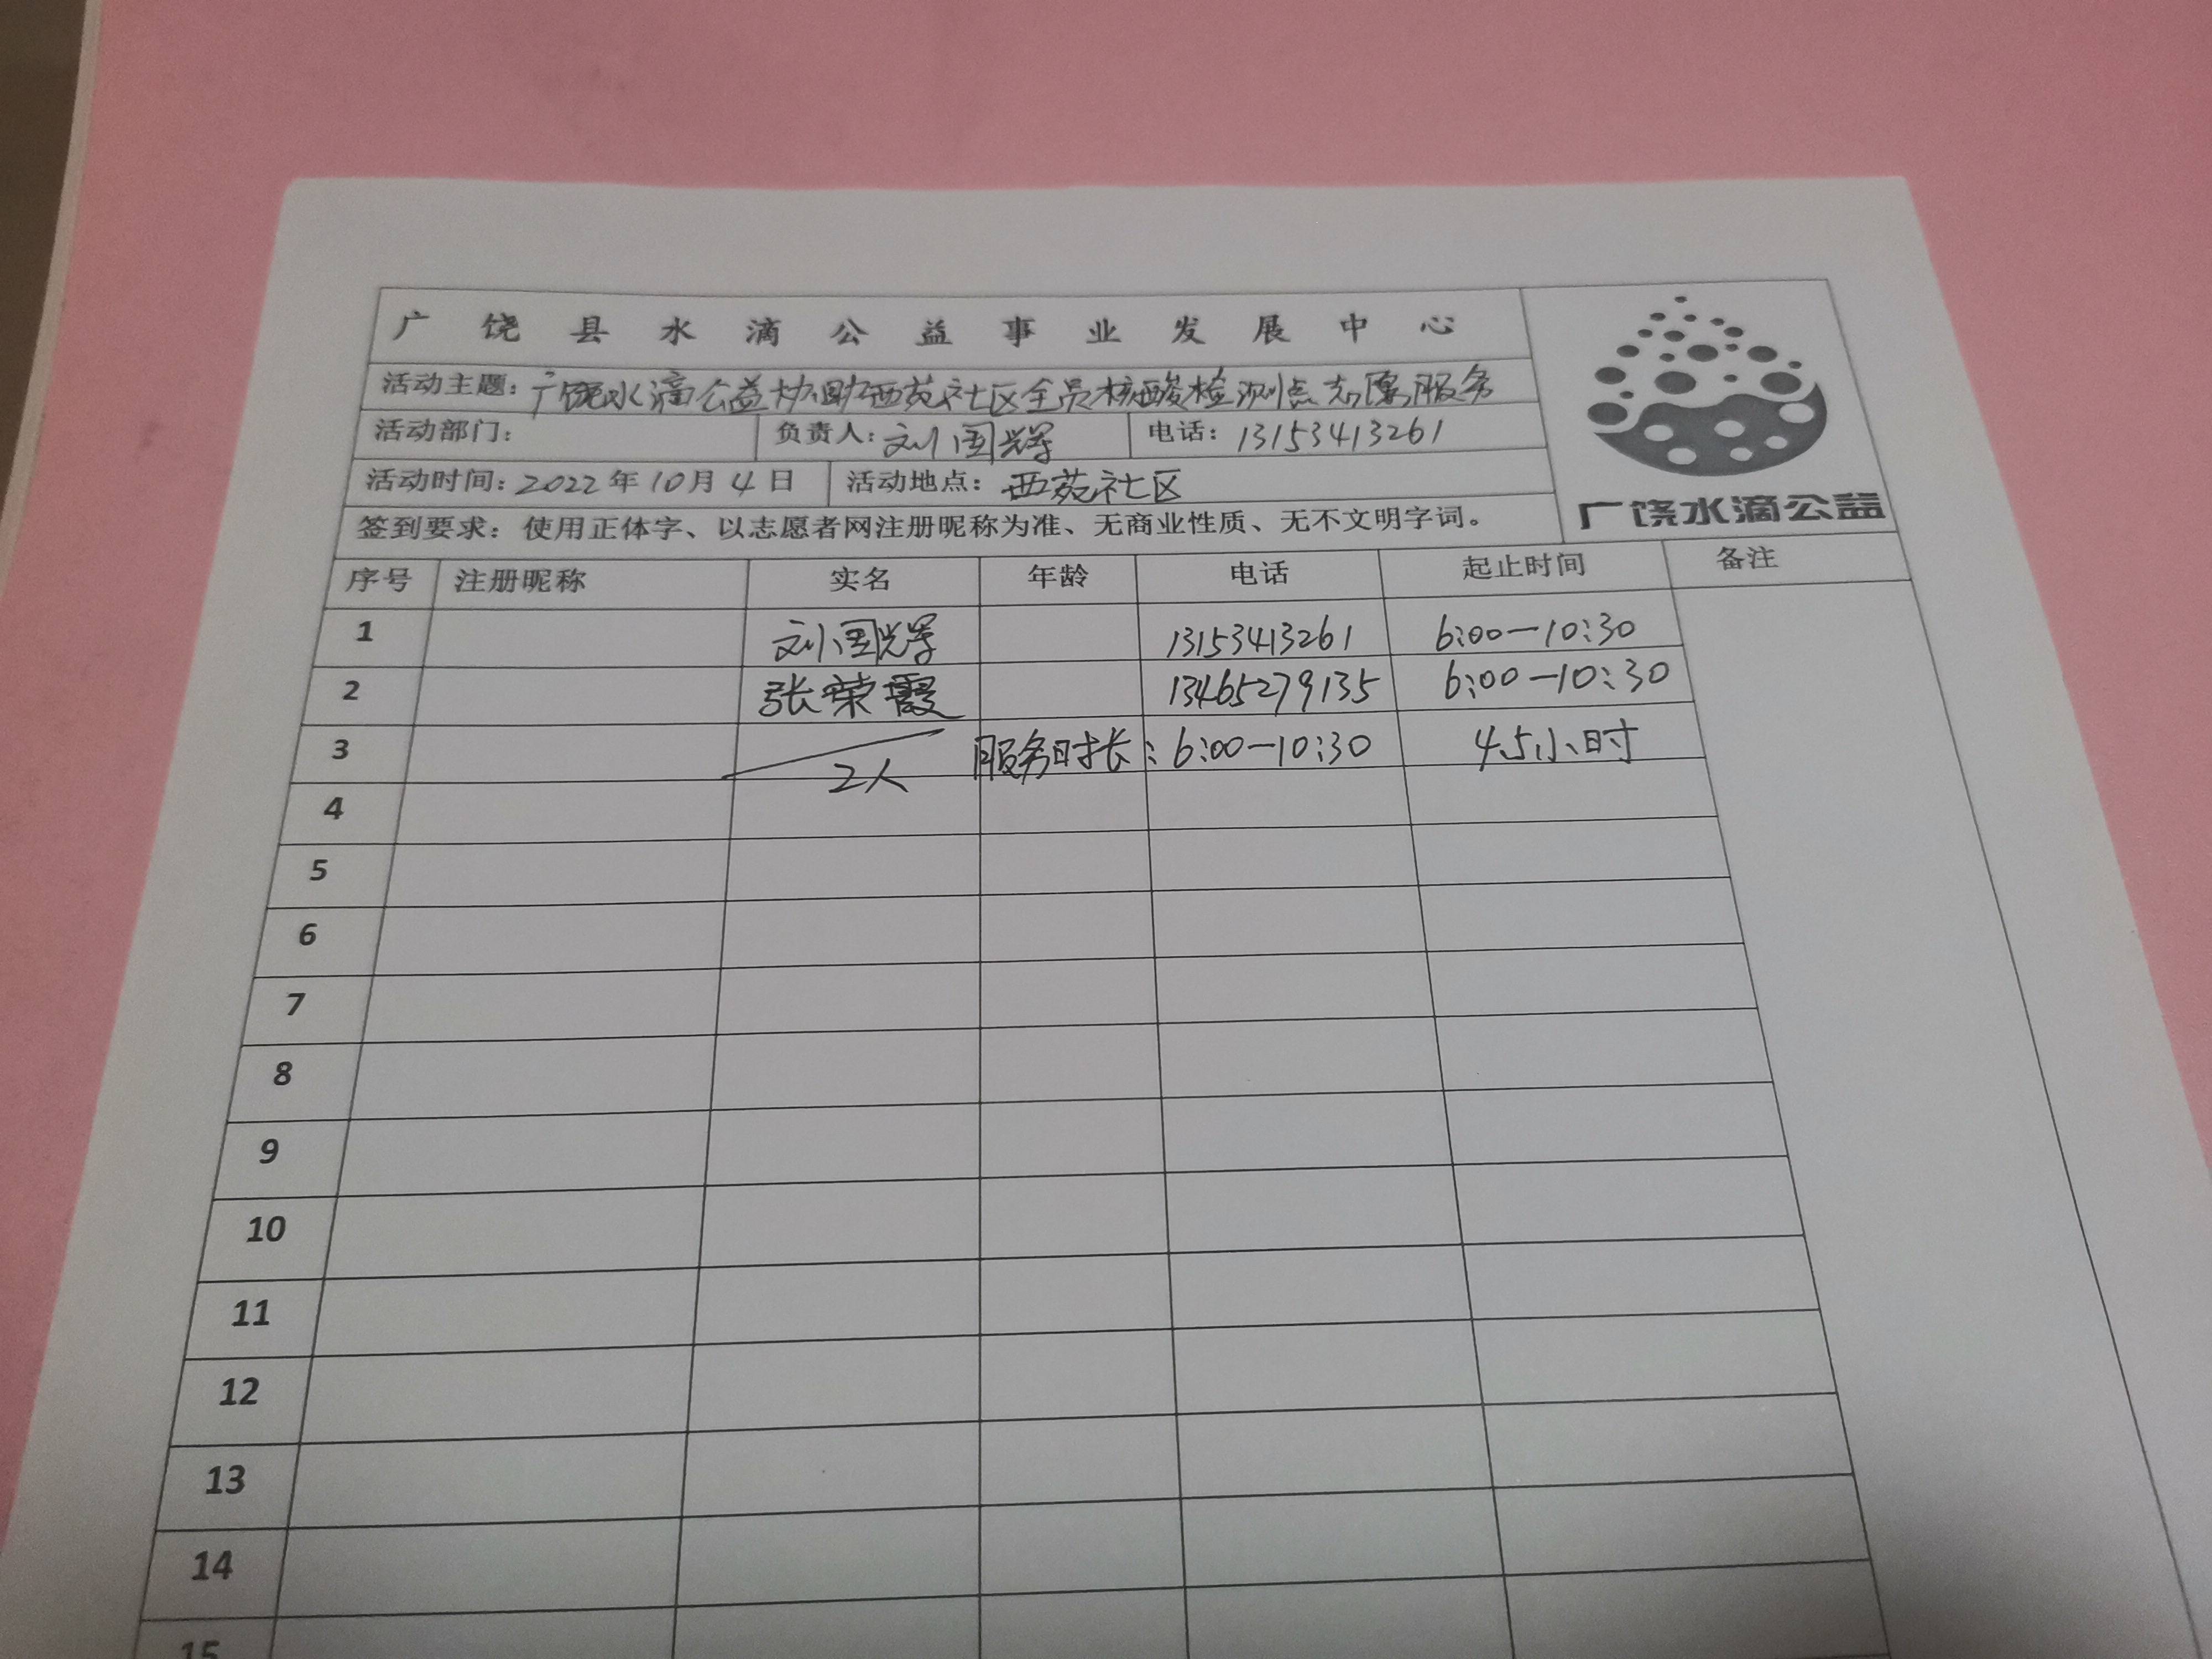 广饶县水滴公益事业发展中心
活动主题：广饶水滴公益协助西苑社区全员核酸检测点志愿服务
活动部门： 负责人：刘国辉 电话：13153413261
活动时间：2022年10月4日 活动地点：西苑社区
广饶水滴公益
签到要求：使用正体字、以志愿者网注册昵称为准、无商业性质、无不文明字词。
序号 注册昵称 实名 年龄 电话 起止时间 备注
1 刘国辉 13153413261 6:00—10:30
2 张荣霞 13465279135 6:00—10:30
3 2人 服务时长：6:00—10:30 4.5小时
4
5
6
7
8
9
10
11
12
13
14
15